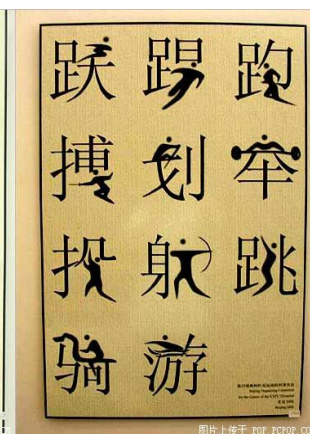 跃 踢 跑
搏 划 举
投 射 跳
骑 游
图片上传于 POP.PCPOP.CO